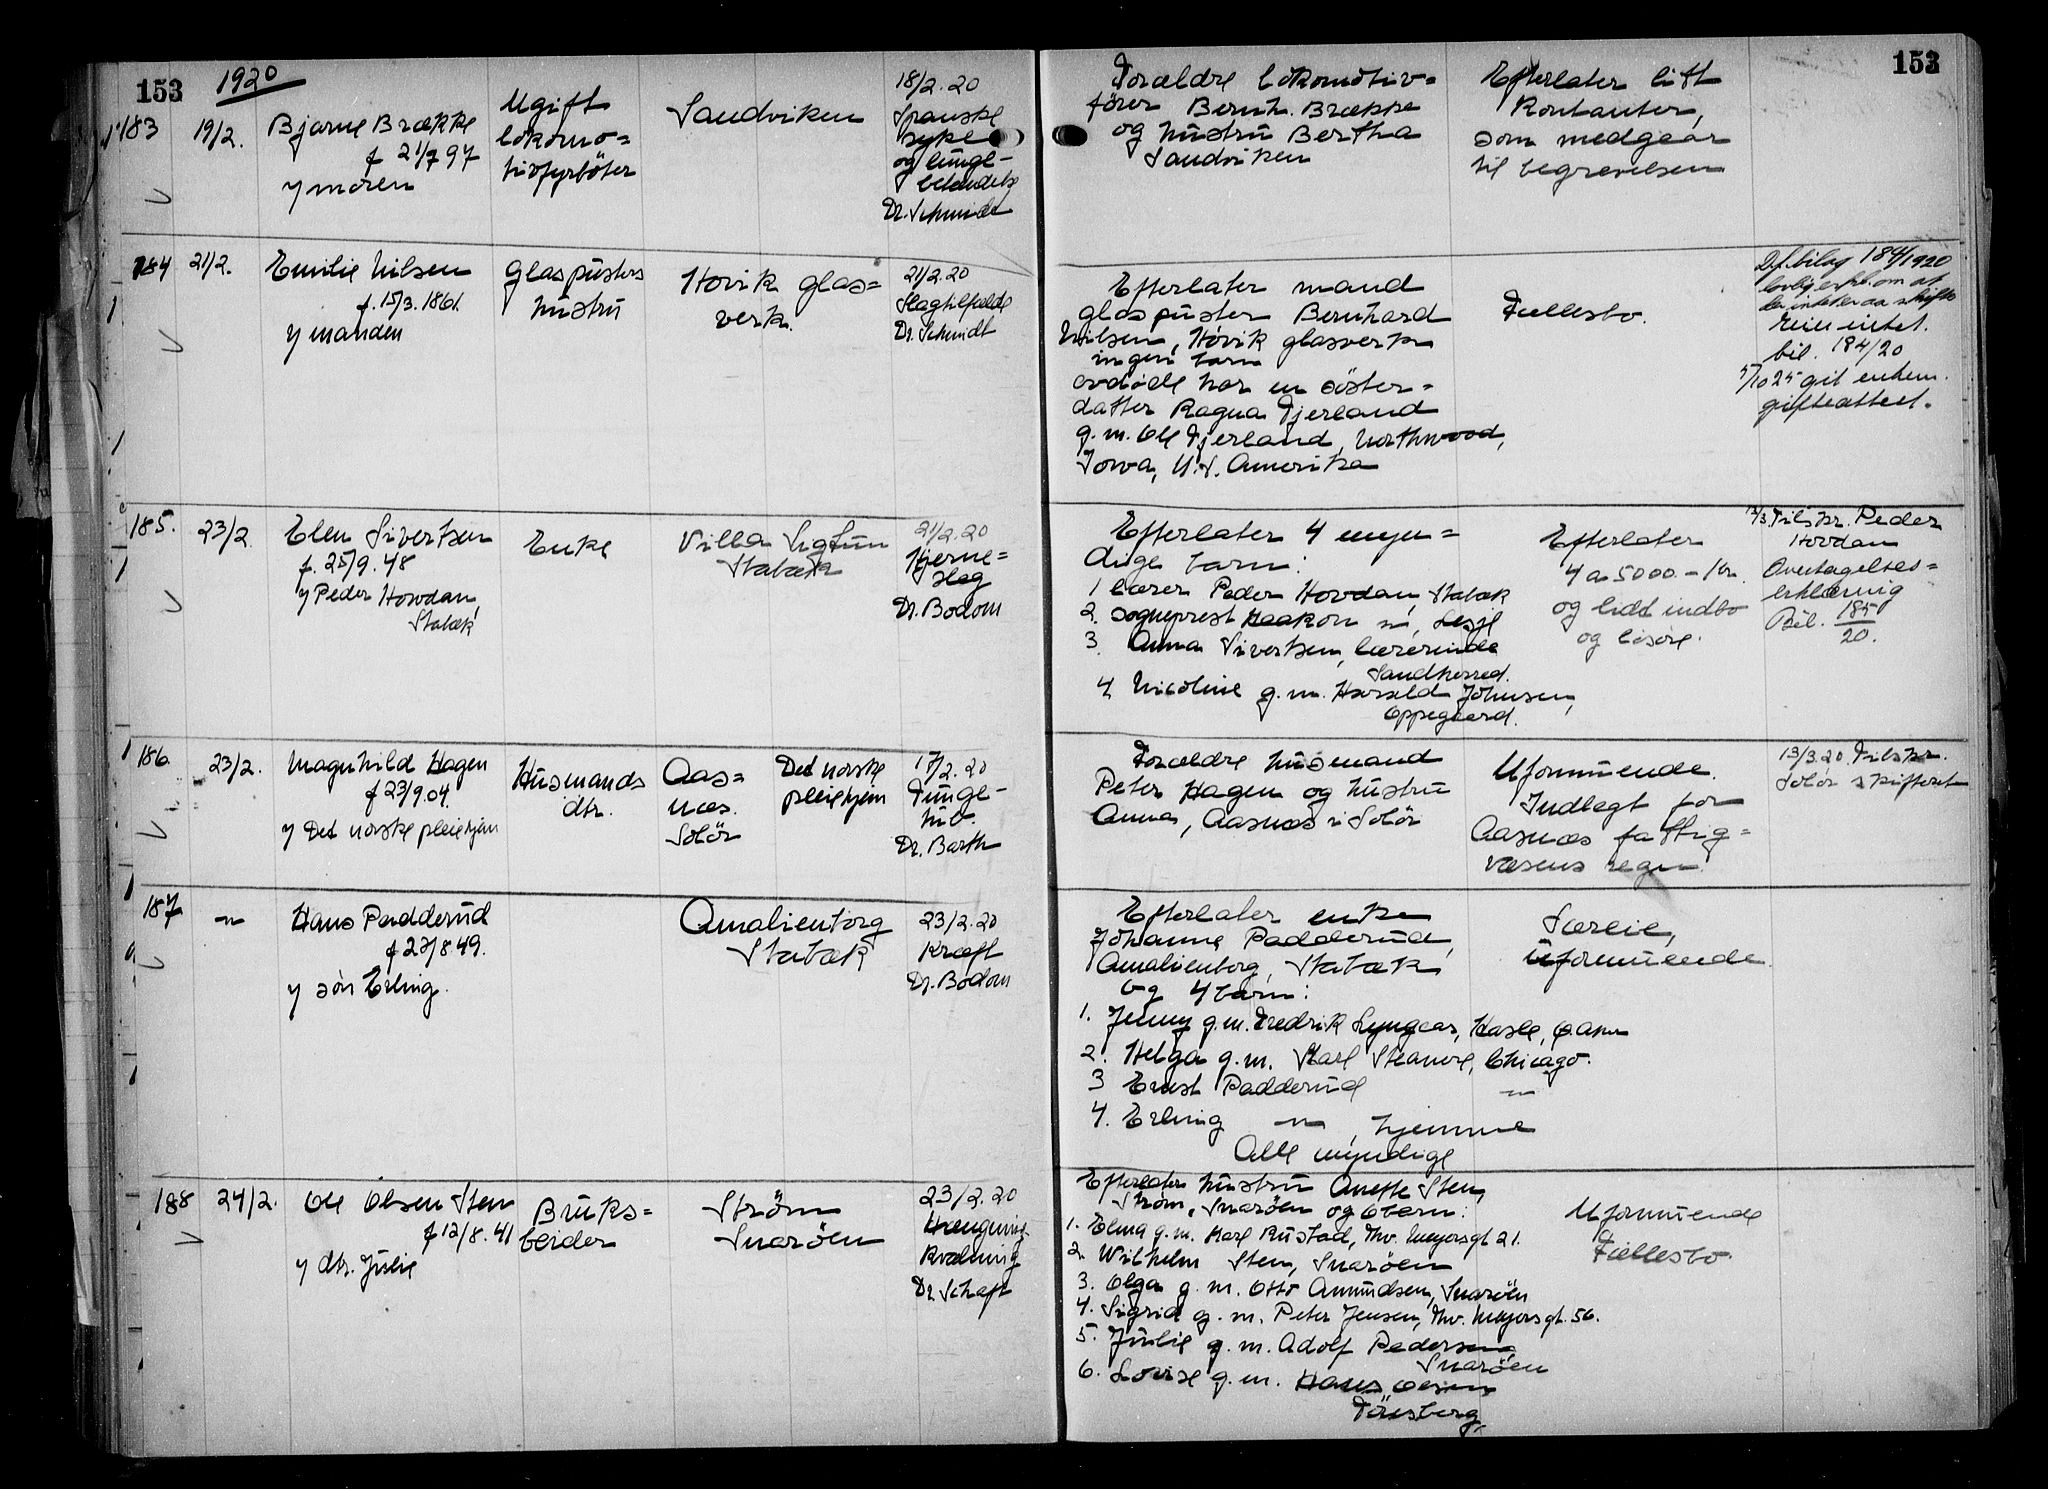 153
1920
153
183
19/2.
Bjarne Brække
f 21/7 97
v moren
Ugift
lokomo=
tivfyrböter
Sandviken
18/2.20
Spanske
syke
og lunge-
betændelse
Dr. Schmidt
Forældre lokomotiv=
förer Bernh. Brække
og hustru Bertha
Sandviken
Efterlater litt
Kontanter,
som medgaar
til begravelsen
184
21/2.
Emilie Nilsen
f. 15/3.1861.
v manden
Glaspusters
hustru
Hövik glas=
verk.
21/2.20
Slagtilfælde
Dr. Schmidt
Efterlater mand
glaspuster Bernhard
Nilsen, Hövik glasverk
ingen barn
avdöde har en söster=
datter Ragna Fjerland
g.m. Ole Fjerland, Northwood,
Iowa, U.S. Amerika
Fællesbo.
bilag 184/1920
om at
bil. 184/20
5/10 25 git enkem.
gifteattest.
185.
23/2.
Elen Sivertsen
f. 25/9.48
v Peder Hovdan,
Stabæk
Enke
Villa Sigtun
Stabæk
21/2.20
Hjerne=
slag
Dr. Bodom
Efterlater 4 myn=
dige barn:
1 lærer Peder Hovdan, Stabæk
2. sogneprest Haakon "
3. Anna Sivertsen, lærerinde
Sandherred.
4, Nicoline g.m. Harald Johnsen,
Oppegaard.
Efterlater
4 a 5000.- kr.
og lidt indbo
og lösöre.
13/3. Tilskr. Peder
Hovdan
Overtagelses=
erklæring
Bil. 185/20.
186.
23/2.
Magnhild Hagen
f 23/9.04.
v Det norske pleiehjem
Husmands
dtr.
Aas=
næs.
Solör
Det norske
pleiehjem
17/2.20
Tunge-
Dr. Barth
Forældre husmand
Peter Hagen og hustru
Anna, Aasnæs i Solör
Uformuende.
Indlagt for
Aasnæs fattig=
væsens regn
13/3.20 Tilskr.
Solör skifteret
187
"
Hans Padderud
f 23/8.49.
v sön Erling.
Amalienborg
Stabæk
23/2.20
Kræft
Dr. Bodom
Efterlater enke
Johanne Padderud,
Amalienborg, Stabæk
og 4 barn:
1. Jenny g.m. Fredrik Lyngaas, Hasle, Ö. Aker
2. Helga g.m. Karl Chicago.
3 Ernst Padderud "
4. Erling " , hjemme
Alle myndige
Særeie,
uformuende.
188
24/2.
Ole Olsen Sten
f 12/8.41
v dtr. Julie
Bruks=
beider
Ström
Snaröen
23/2.20
Hængning
Kvælning
Dr. Schaft
Efterlater hustru Anette Sten,
Ström, Snaröen og 6 barn:
1. Elma g.m. Karl Rustad, Thv. Meyersgt 21.
2. Wilhelm Sten, Snaröen
3. Olga g.m. Otto Amundsen, Snaröen
4. Sigrid g.m. Peter Jensen, Thv. Meyersgt. 56.
5. Julie g.m. Adolf Pedersen
Snaröen
6. Lovise g.m. Hans Olsen
Tönsberg.
Uformuende
Fællesbo.